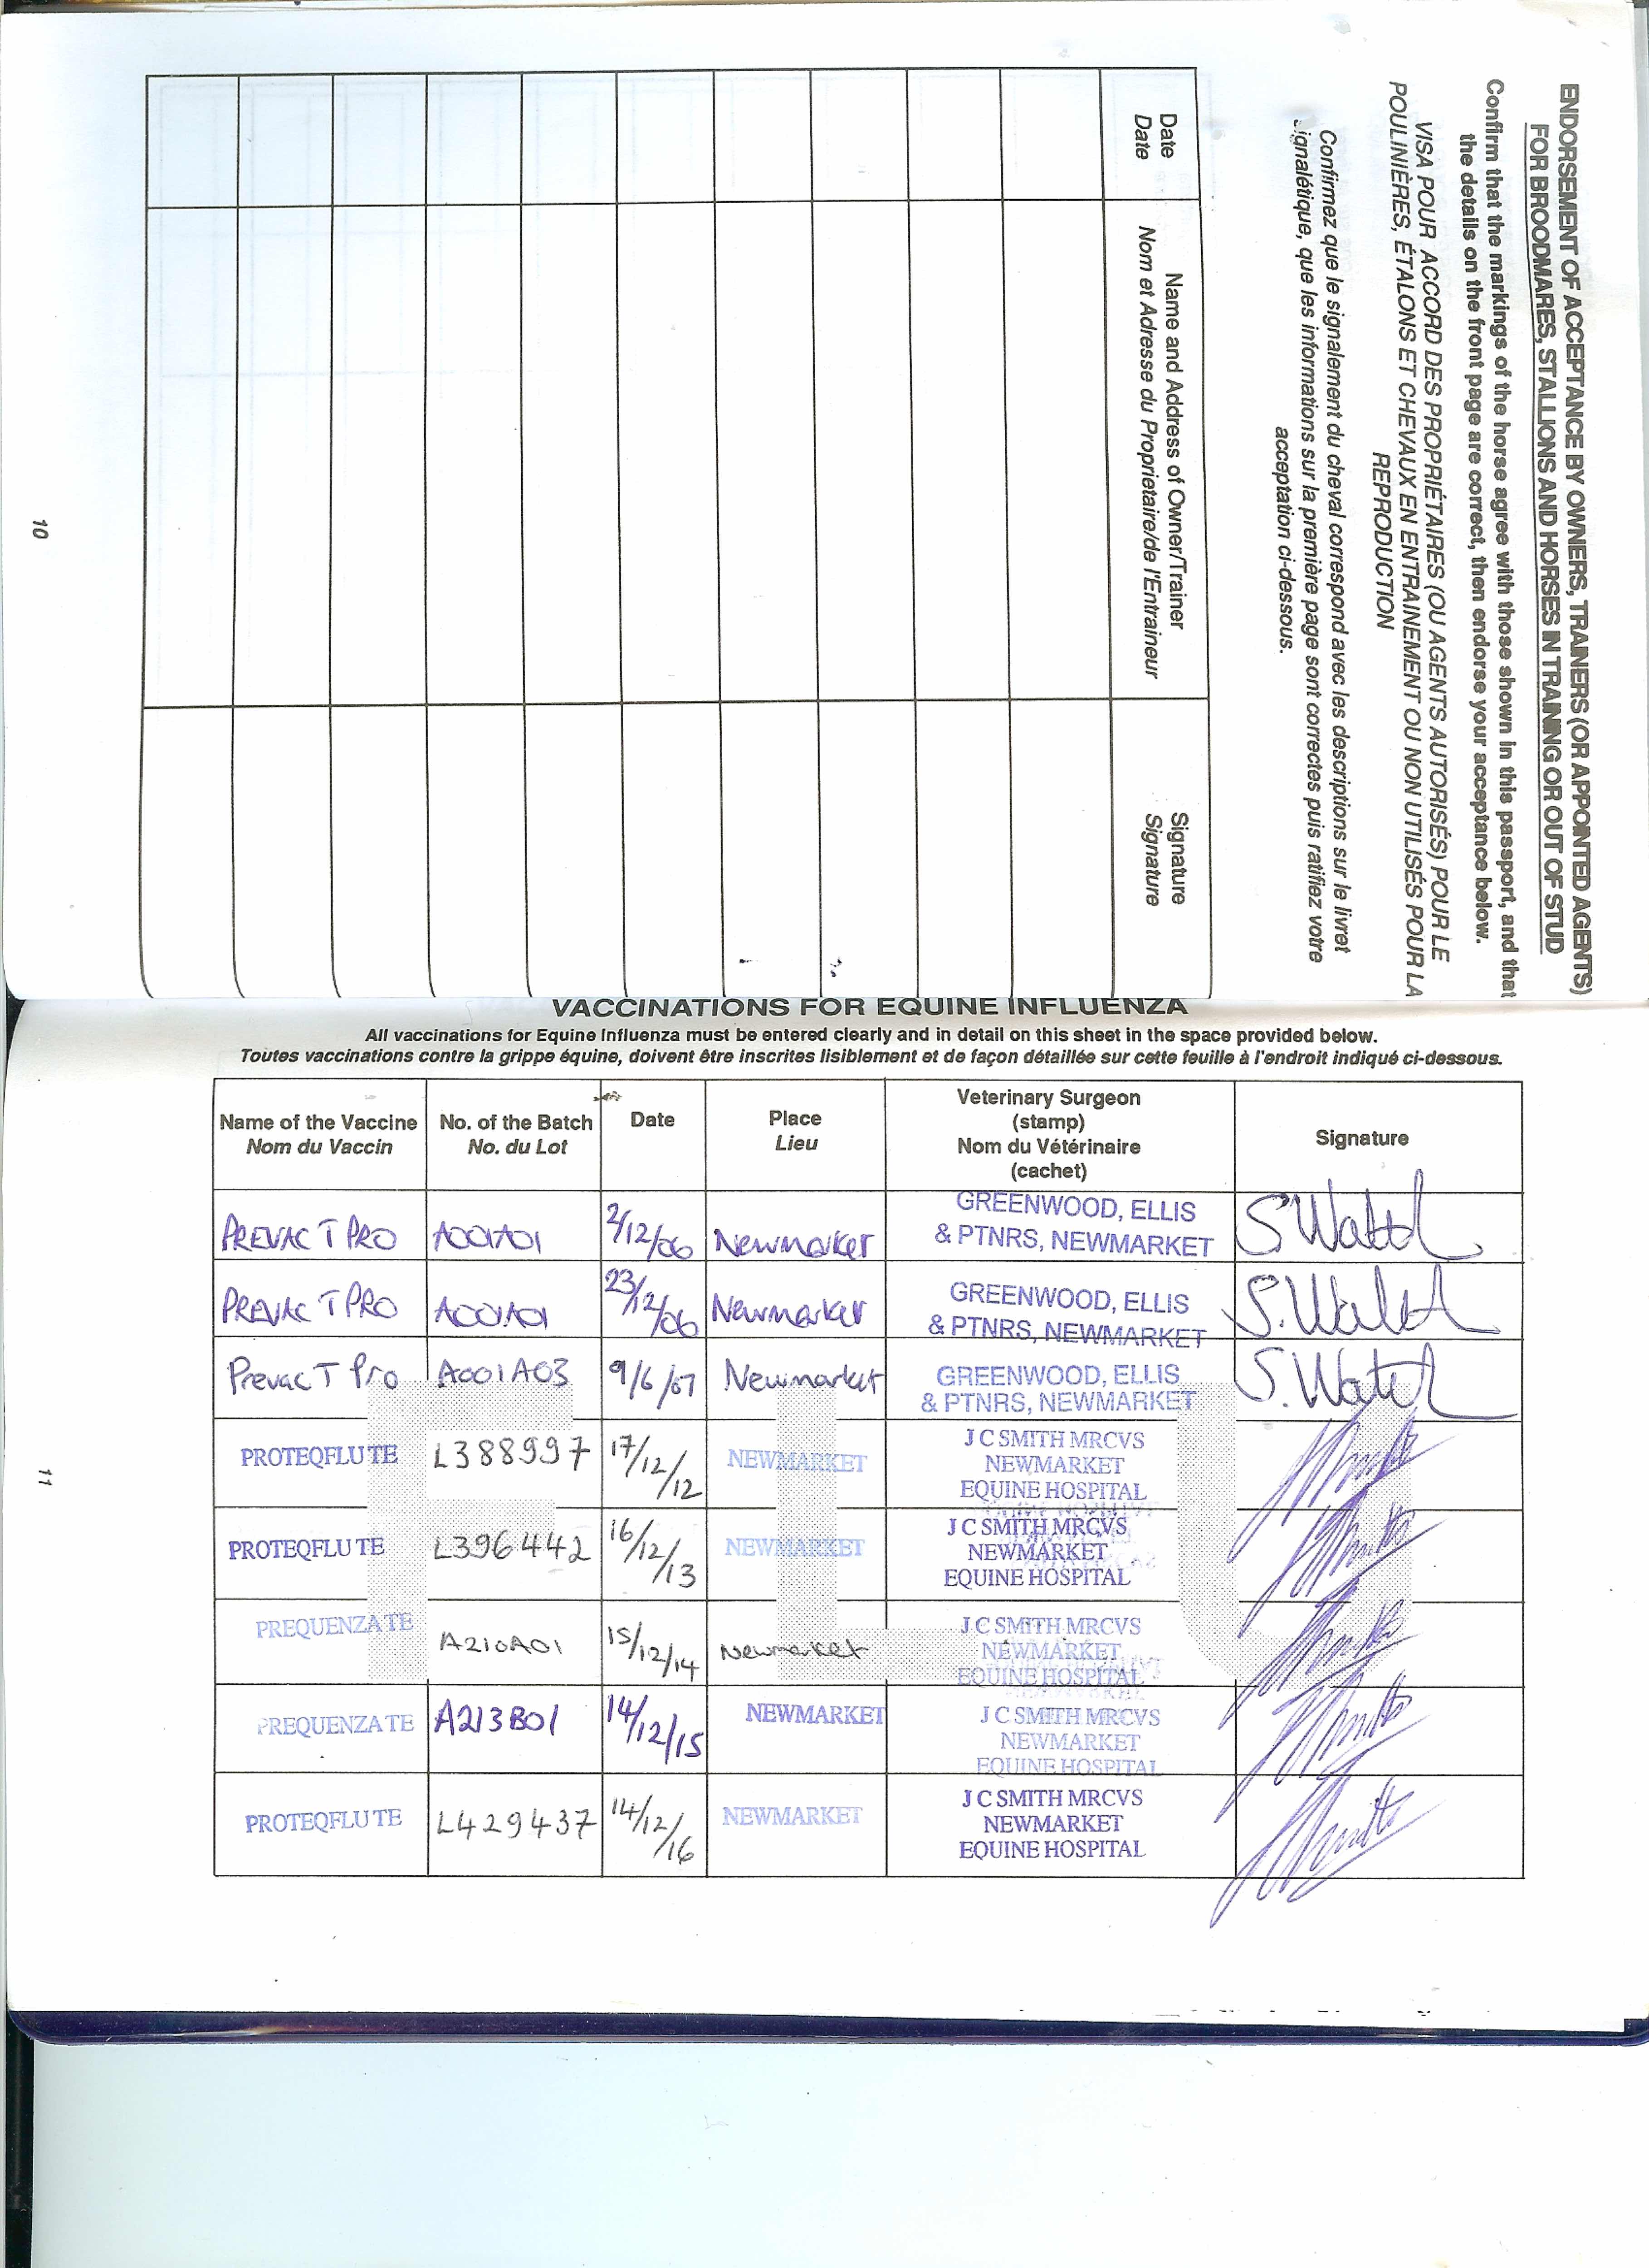 ENDORSEMENT OF ACCEPTANCE BY OWNERS, TRAINERS (OR APPOINTED AGENTS)
FOR BROODMARES, STALLIONS AND HORSES IN TRAINING OR OUT OF STUD
Confirm that the markings of the horse agree with those shown in this passport, and that
the details on the front page are correct, then endorse your acceptance below.
VISA POUR ACCORD DES PROPRIÉTAIRES (OU AGENTS AUTORISÉS) POUR LE
POULINIÈRES, ÉTALONS ET CHEVAUX EN ENTRAINEMENT OU NON UTILISÉS POUR LA
REPRODUCTION
Confirmez que le signalement du cheval correspond avec les descriptions sur le livret
signalétique, que les informations sur la première page sont correctes puis ratifiez votre
acceptation ci-dessous.
Date Name and Address of Owner/Trainer Signature
Date Nom et Adresse du Proprietaire/de l'Entraineur Signature
10
VACCINATIONS FOR EQUINE INFLUENZA
All vaccinations for Equine Influenza must be entered clearly and in detail on this sheet in the space provided below.
Toutes vaccinations contre la grippe équine, doivent être inscrites lisiblement et de façon détaillée sur cette feuille à l'endroit indiqué ci-dessous.
Name of the Vaccine
Nom du Vaccin
No. of the Batch
No. du Lot
Date
Place
Lieu
Veterinary Surgeon
(stamp)
Nom du Vétérinaire
(cachet)
Signature
PREVAC T PRO A001A01 2/12/06 Newmarket
GREENWOOD, ELLIS
& PTNRS, NEWMARKET
PREVAC T PRO A001A01 23/12/06 Newmarket
GREENWOOD, ELLIS
& PTNRS, NEWMARKET
Prevac T Pro A001A03 9/6/07 Newmarket
GREENWOOD, ELLIS
& PTNRS, NEWMARKET
PROTEQFLU TE L388997 17/12/12 NEWMARKET
J C SMITH MRCVS
NEWMARKET
EQUINE HOSPITAL
PROTEQFLU TE L396442 16/12/13 NEWMARKET
J C SMITH MRCVS
NEWMARKET
EQUINE HOSPITAL
PREQUENZA TE A210A01 15/12/14 Newmarket
J C SMITH MRCVS
NEWMARKET
EQUINE HOSPITAL
PREQUENZA TE A213B01 14/12/15 NEWMARKET
J C SMITH MRCVS
NEWMARKET
EQUINE HOSPITAL
PROTEQFLU TE L429437 14/12/16 NEWMARKET
J C SMITH MRCVS
NEWMARKET
EQUINE HOSPITAL
11